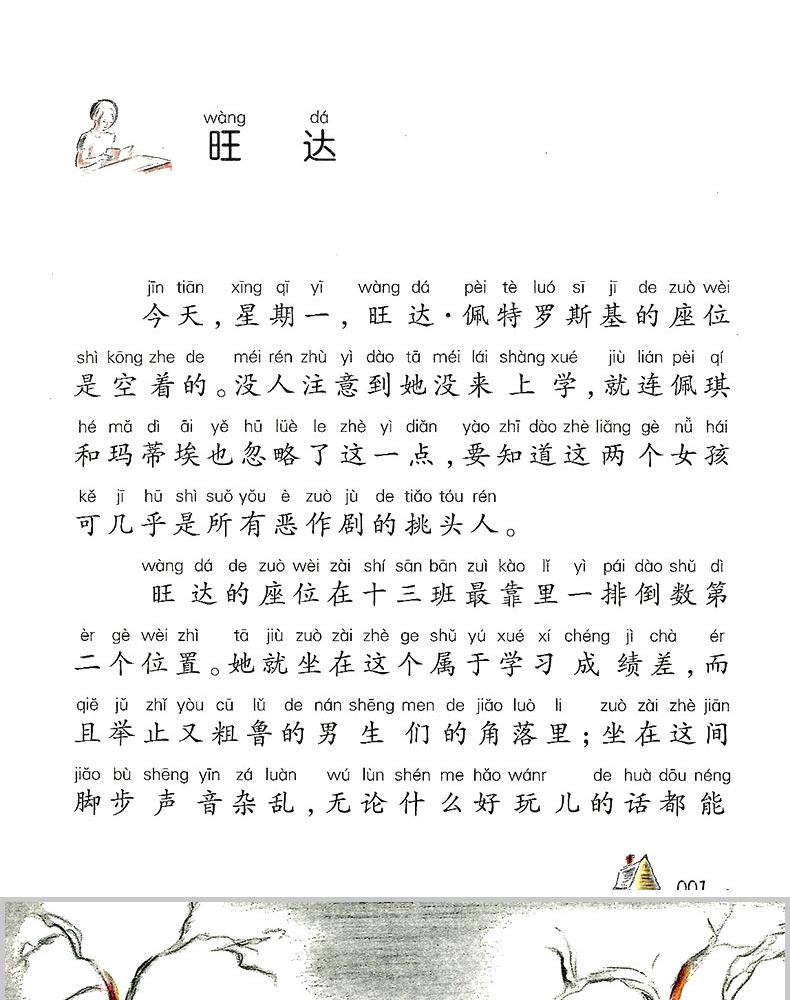 wàng dá
旺 达
jīn tiān xīng qī yī wàng dá pèi tè luó sī jī de zuò wèi
今天，星期一，旺达·佩特罗斯基的座位
shì kōng zhe de méi rén zhù yì dào tā méi lái shàng xué jiù lián pèi qí
是空着的。没人注意到她没来上学，就连佩琪
hé mǎ dì āi yě hū lüè le zhè yì diǎn yào zhī dào zhè liǎng gè nǚ hái
和玛蒂埃也忽略了这一点，要知道这两个女孩
kě jī hū shì suǒ yǒu è zuò jù de tiǎo tóu rén
可几乎是所有恶作剧的挑头人。
wàng dá de zuò wèi zài shí sān bān zuì kào lǐ yì pái dào shǔ dì
旺达的座位在十三班最靠里一排倒数第
èr gè wèi zhì tā jiù zuò zài zhè ge shǔ yú xué xí chéng jì chà ér
二个位置。她就坐在这个属于学习成绩差，而
qiě jǔ zhǐ yòu cū lǔ de nán shēng men de jiǎo luò li zuò zài zhè jiān
且举止又粗鲁的男生们的角落里；坐在这间
jiǎo bù shēng yīn zá luàn wú lùn shén me hǎo wánr de huà dōu néng
脚步声音杂乱，无论什么好玩儿的话都能
001